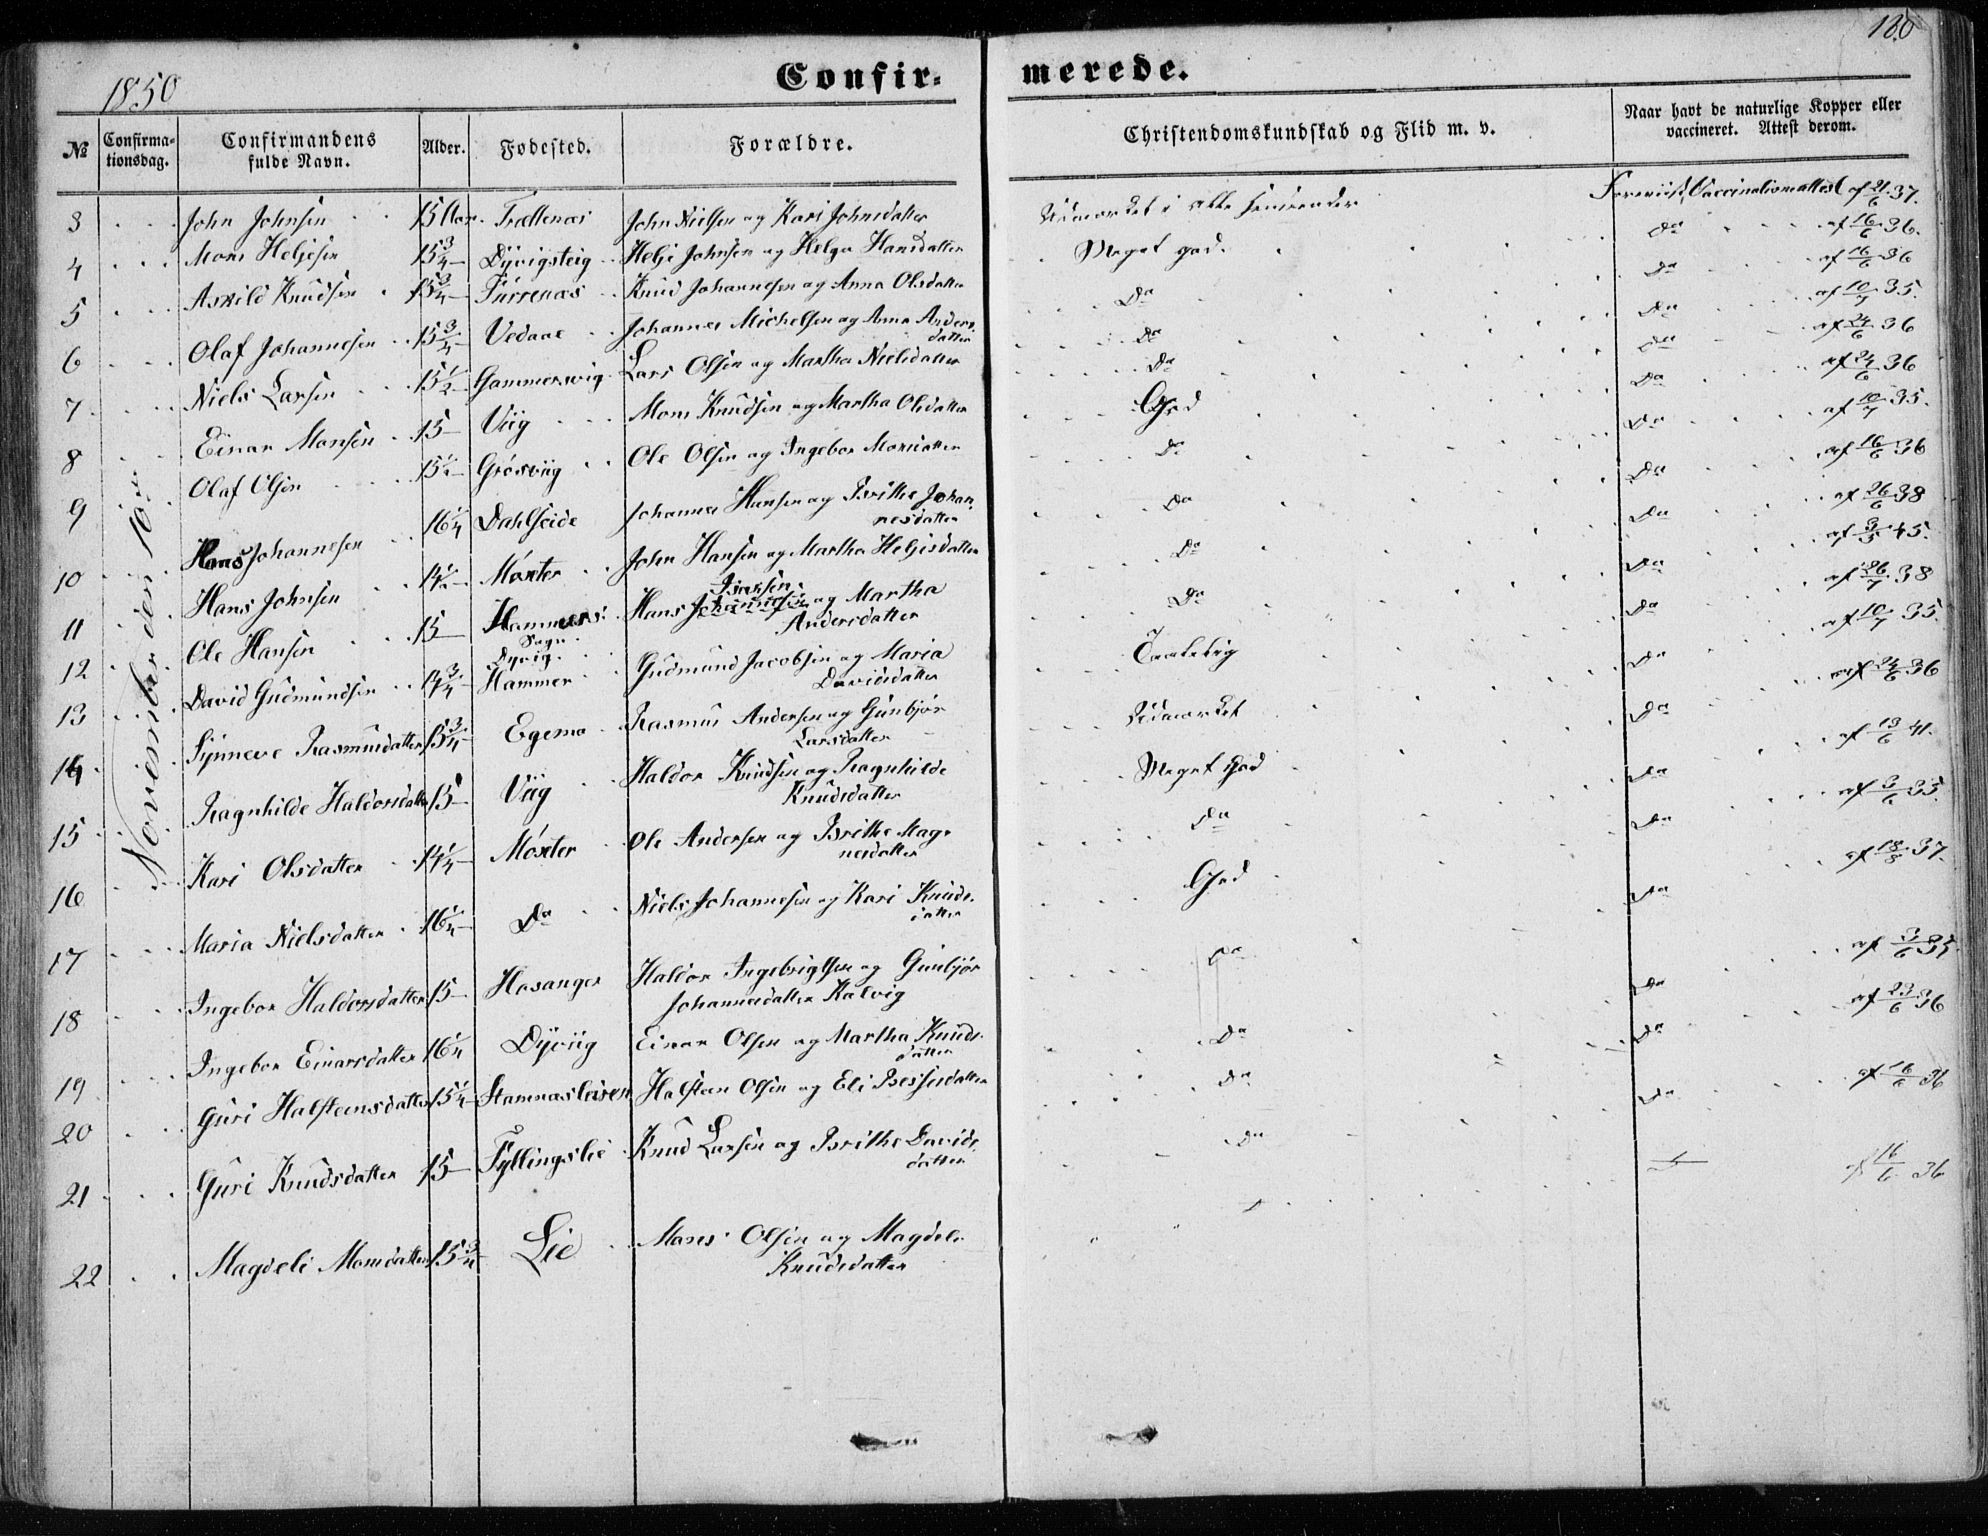 1850
Confirmerede.
180
№ Confirmationsdag. Confirmandens fulde Navn. Alder. Fødested. Forældre. Christendomskundskab og Flid m. v. Naar havt de naturlige Kopper eller vaccineret. Attest derom.
November den 10de
3 John Johnsen 15 Aar Trættenæs John Nielsen og Kari Johnsdatter Udmærket i alle Henseender Foreviist Vaccinationsattest af 21/6 37.
4 Mons Heljesen 15 3/4 Dyvigsteig Helje Johnsen og Helga Hansdatter Meget god. Do af 16/6 36.
5 Askild Knudsen 15 3/4 Turrenæs Knud Johannesen og Anna Olsdatter Do Do af 16/6 36
6 Olaf Johannesen 15 3/4 Vedaae Johannes Michelsen og Anna Anders-
datter Do Do af 10/7 35.
7 Niels Larsen 15 1/2 Gammersvig Lars Olsen og Martha Nielsdatter Do Do af 24/6 36
8 Einar Monsen 15 Viig Mons Knudsen og Martha Olsdatter God Do af 24/6 36
9 Olaf Olsen 15 1/2 Grósviig Ole Olsen og Ingebor Monsdatter Do Do af 10/7 35.
10 Hans Johannesen 16 1/4 Dahlseide Johannes Hansen og Brithe Johan-
nesdatter Do Do af 16/6 36
11 Hans Johnsen 14 1/2 Móxter John Hansen og Martha Heljesdatter Do Do af 26/6 38
12 Ole Hansen 15 Hammers
Sogn Hans og Martha
Andersdatter Do Do af 3/5 45.
13 David Gudmundsen 14 3/4 Dyvig
Hammer Gudmund Jacobsen og Maria
Davidsdatter Taalelig Do af 26/7 38
14 Synneve Rasmusdatter 15 3/4 Egemo Rasmus Andersen og Gunbjør
Larsdatter Udmærket Do af 10/7 35.
15 Ragnhilde Haldorsdatter 15 Viig Haldor Knudsen og Ragnhilde
Knudsdatter Meget God Do af 24/6 36
16 Kari Olsdatter 14 1/4 Móxter Ole Andersen og Brithe Mag-
nesdatter Do Do af 13/6 41.
17 Maria Nielsdatter 16 1/4 Do Niels Johannesen og Kari Knuds-
datter God Do af 3/6 35.
18 Ingebor Haldorsdatter 15 Hosanger Haldor Ingebrigtsen og Gunbjør
Johannesdatter Kalvig Do Do af 18/8 37.
19 Ingebor Einarsdatter 16 1/4 Dyviig Einar Olsen og Martha Knuds-
datter Do Do af 3/6 35
20 Guri Halsteensdatter 15 1/4 Stamnæsleiren Halsteen Olsen og Eli Bessesdatter Do Do af 23/6 36
21 Guri Knudsdatter 15 Fyllingslie Knud Larsen og Brithe Davids-
datter Do Do af 16/6 36
22 Magdeli Monsdatter 15 3/4 Lie Mons Olsen og Magdeli
Knudsdatter af 16/6 36